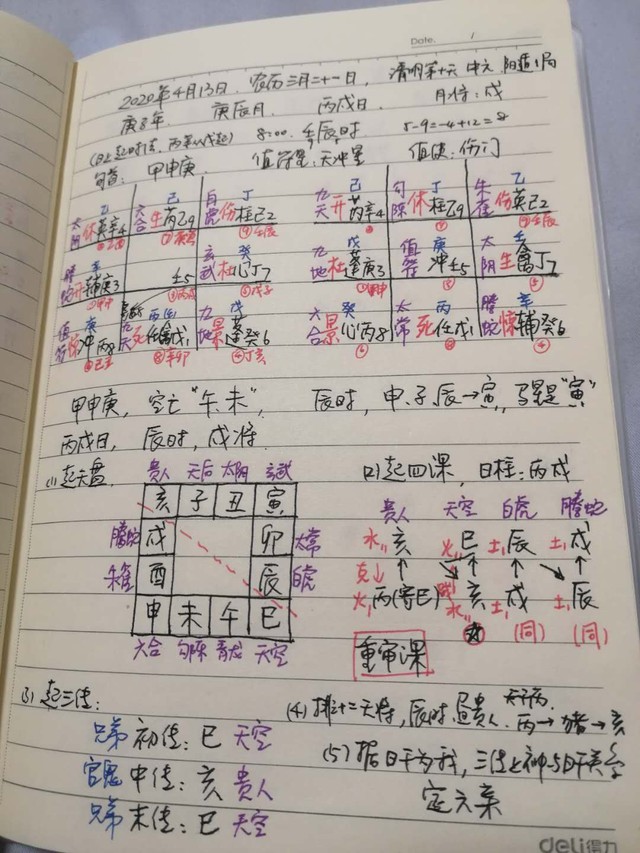 Date. 1
2020年4月13日 农历三月二十一日, 清明第十天 中元 阳遁1局
庚子年 庚辰月 丙戌日 月将:戌
(日上起时法,丙辛从戊起) 8:00 壬辰时 5-9=-4+12=8
旬首: 甲申庚 值符星:天冲星 值使:伤门
乙 己 丁
太阴 休英辛4 六合 生芮乙9 白虎 伤柱己2
乙 庚 己
九天 开芮辛4 勾陈 休柱乙9 朱雀 伤英己2
壬 癸
螣蛇 开辅庚3 壬5 玄武 杜心丁7
戊 庚 壬
九地 杜蓬庚3 值符 冲壬5 太阴 生禽丁7
庚 丙 戊
值符 惊冲丙8 九天 死任戊1 九地 景蓬癸6
癸 丙 辛
六合 景心丙8 太常 死任戊1 螣蛇 惊辅癸6
甲申庚,空亡"午.未", 辰时,申.子.辰→寅,马星是"寅"
丙戌日,辰时,戌将
(1)起天盘
贵人 天后 太阴 玄武
亥 子 丑 寅
螣蛇 戌 卯 太常
朱雀 酉 辰 白虎
申 未 午 巳
六合 勾陈 青龙 天空
(2)起四课,日柱:丙戌
贵人 天空 白虎 螣蛇
水 亥 火 巳 土 辰 土 戌
克↓
火 丙(寄巳) 水 亥 土 戌 土 辰
(同) (同)
重审课
(3)起三传:
兄弟 初传:巳 天空
官鬼 中传:亥 贵人
兄弟 末传:巳 天空
(4)排十二天将,辰时,昼贵人.丙→猪→亥
(5)据日干为我,三传之神与日干关系
定六亲
deli得力